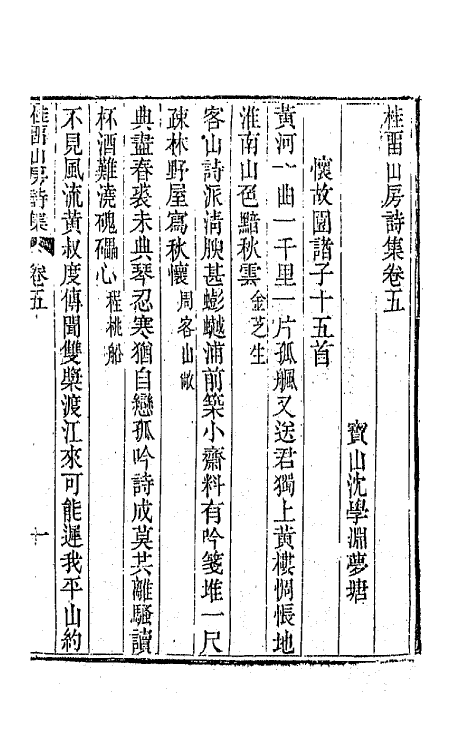 桂畱山房詩集卷五
寶山沈學淵夢塘
懷故園諸子十五首
黃河一曲一千里一片孤颿又送君獨上黃樓惆悵地
淮南山色黯秋雲金芝生
客山詩派淸腴甚蟛蜞浦前築小齋料有吟箋堆一尺
疎林野屋寫秋懷周客山
典盡春裘未典琴忍寒猶自戀孤吟詩成莫共離騷讀
杯酒難澆磈礧心程桃船
不見風流黃叔度傳聞雙槳渡江來可能遲我平山約
桂畱山房詩集 卷五 一